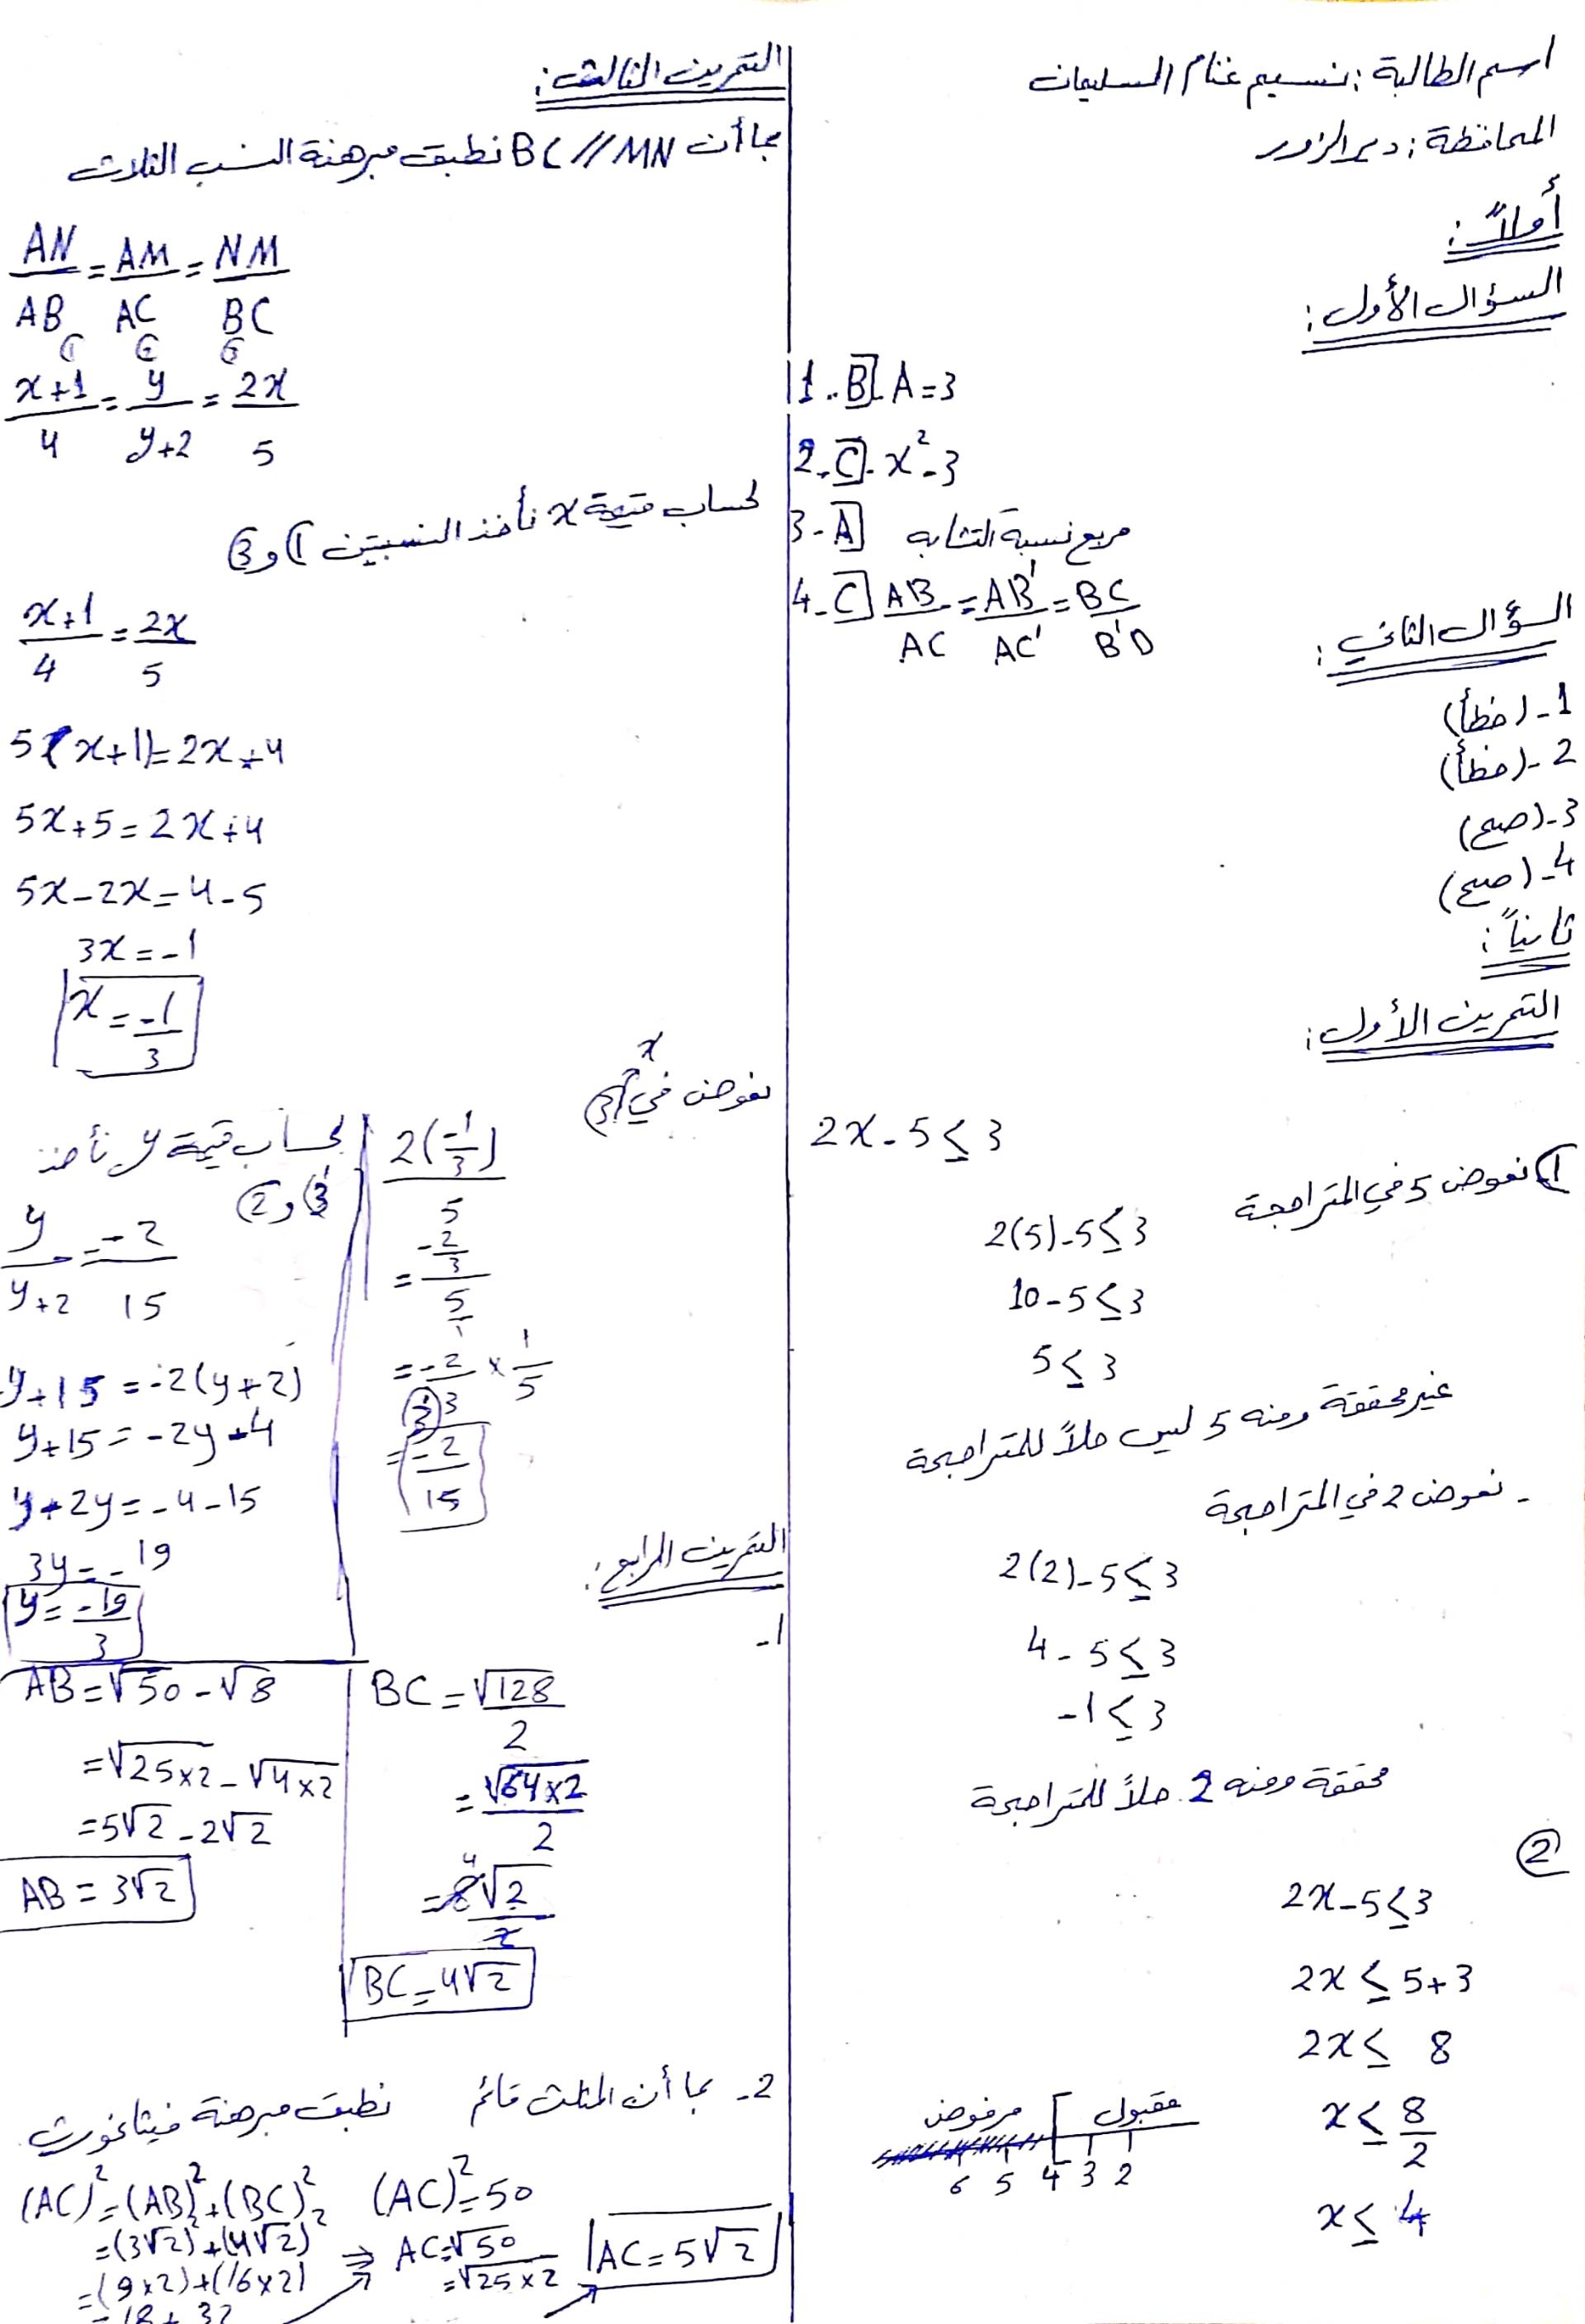 اسم الطالبة: نسيم غنام السليمان
المحافظة: دير الزور
أولاً:
السؤال الأول:
1.. B. A = 3
2. C. x² - 3
3 - A مربع نسبة التشابه
4 - C AB/AC = AB'/AC' = BC/B'D
السؤال الثاني:
1 - (خطأ)
2 - (خطأ)
3 - (صح)
4 - (صح)
ثانياً:
التمرين الأول:
2x - 5 ≤ 3
1 - نعوض 5 في المتراجحة
2(5) - 5 ≤ 3
10 - 5 ≤ 3
5 ≤ 3
غير محققة ومنه 5 ليس حلاً للمتراجحة
- نعوض 2 في المتراجحة
2(2) - 5 ≤ 3
4 - 5 ≤ 3
-1 ≤ 3
محققة ومنه 2 حلاً للمتراجحة
②
2x - 5 ≤ 3
2x ≤ 5 + 3
2x ≤ 8
x ≤ 8/2
مرفوض [ مقبول
6 5 4 3 2
x ≤ 4
التمرين الثالث:
بما أن BC // MN نطبق مبرهنة النسب الثلاث
AN/AB = AM/AC = NM/BC
x+1/4 = y/y+2 = 2x/5
لحساب قيمة x نأخذ النسبتين 1 و 3
x+1/4 = 2x/5
5(x+1) = 2x+4
5x+5 = 2x+4
5x - 2x = 4 - 5
3x = -1
x = -1/3
نعوض x في 3
2(-1/3)/5
= -2/3 / 5/1
= -2/3 × 1/5
③ = -2/15
لحساب قيمة y نأخذ
3 و 2
y/y+2 = -2/15
y+15 = -2(y+2)
y+15 = -2y+4
y+2y = -4-15
3y = -19
y = -19/3
التمرين الرابع:
1 -
BC = √128/2
= √64×2/2
= 8√2/2
4
BC = 4√2
AB = √50 - √8
= √25×2 - √4×2
= 5√2 - 2√2
AB = 3√2
2 - بما أن المثلث قائم نطبق مبرهنة فيثاغورث
(AC)² = (AB)² + (BC)²
= (3√2)² + (4√2)²
= (9×2) + (16×2)
= 18 + 32
(AC)² = 50
⇒ AC = √50
= √25×2
AC = 5√2